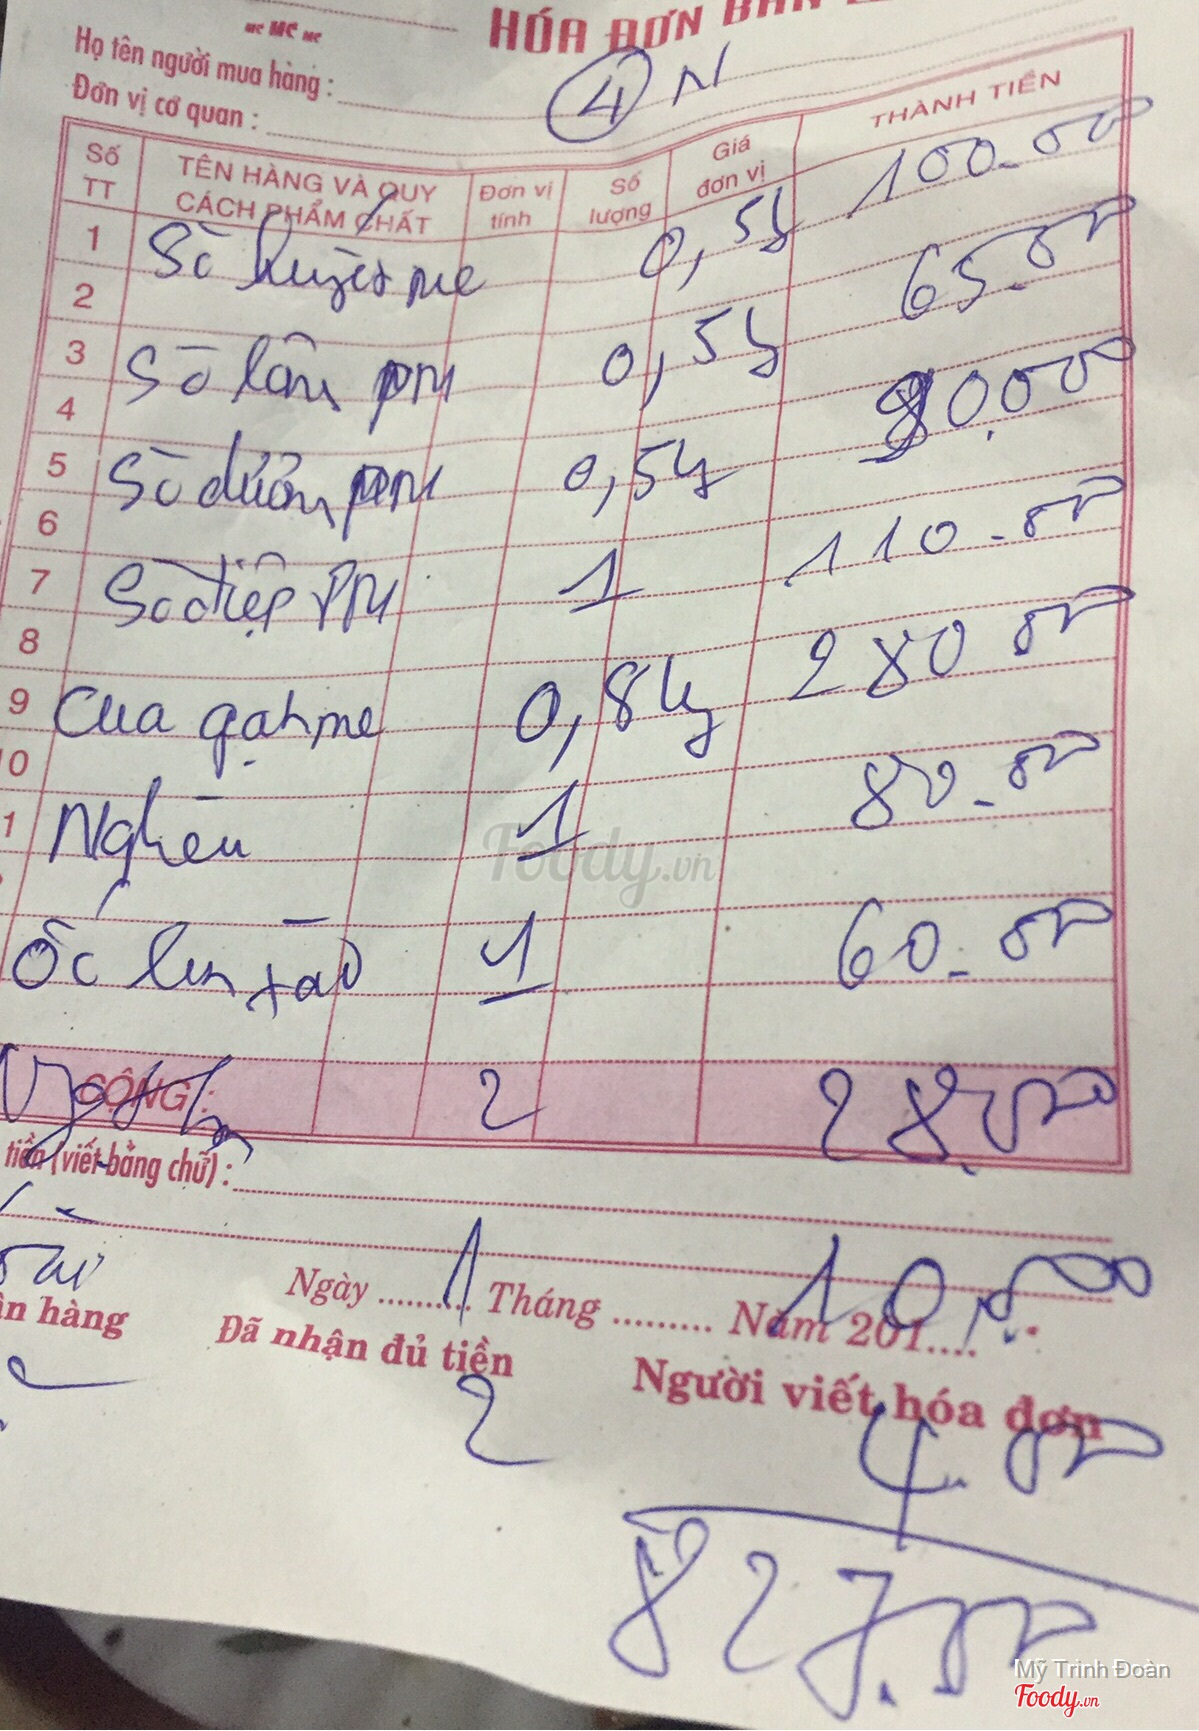 MC MC MC
HÓA ĐƠN BÁN
Họ tên người mua hàng :
Đơn vị cơ quan :
4 N
Số TT TÊN HÀNG VÀ QUY CÁCH PHẨM CHẤT Đơn vị tính Số lượng Giá đơn vị THÀNH TIỀN
1 Sò huyết me 0,5 100.000
2
3 Sò lông 0,5 65.000
4
5 Sò dương 0,5 80.000
6
7 Sò điệp 1 110.000
8
9 Cua gạch me 0,8 kg 280.000
10
11 Nghêu 1 80.000
Ốc len xào 1 60.000
CỘNG : 2 28.000
tiền (viết bằng chữ) :
1 10.000
Ngày Tháng Năm 201
ận hàng Đã nhận đủ tiền Người viết hóa đơn
2 4.000
827.000
Foody.vn
Mỹ Trinh Đoàn
Foody.vn